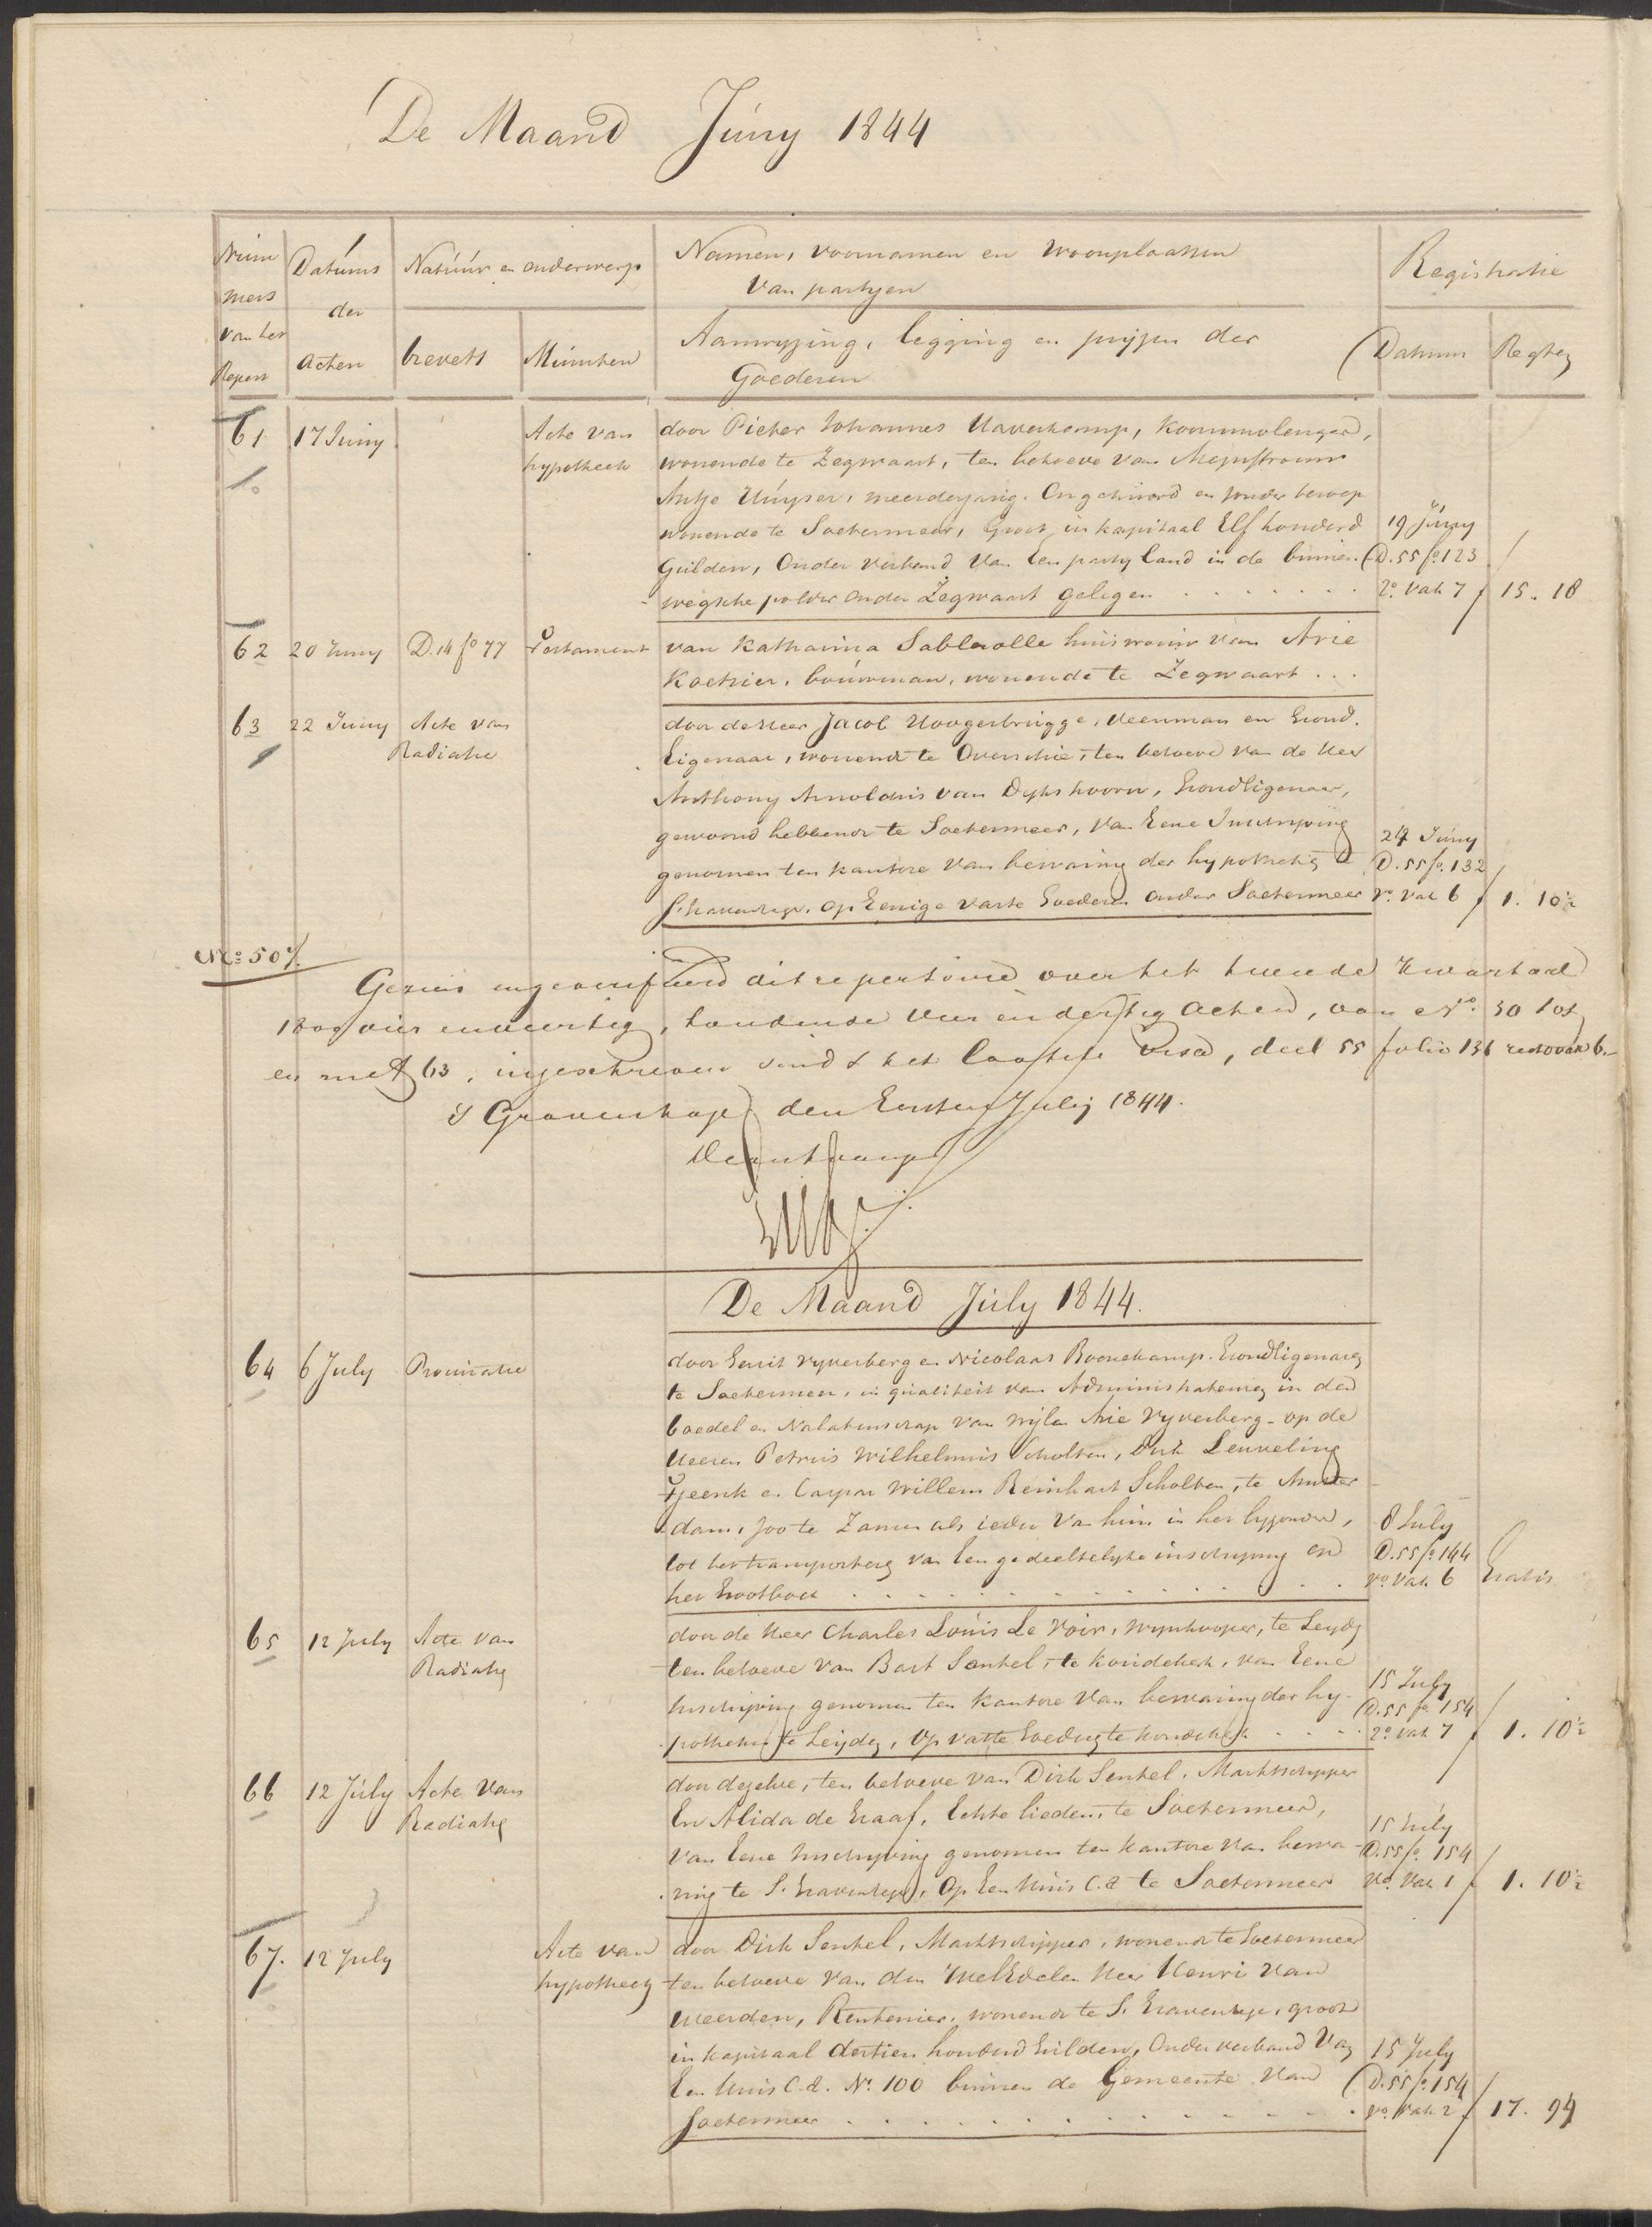 De Maand Júny 1844
Num
mers
van het
Repert
Datúms
der
Acten
Natúúr en onderwerp
brevets
Minúten
Namen, voornamen en Woonplaatsen
Van partyen
Aanwyzing, legging en pryzen der
Goederen
Registratie
Datum
Regten
61 17 Juny Acte van door Pieter Johannes Haverkamp, Koornmolenaar,
hypotheek wonende te Zegwaart, ten behoeve van Mejuffrouw
Antje Húyser, meerderjarig. Ongehuwd en zonder beroep
wonende te Soetermeer, Groot in kapitaal Elf honderd 19 Júny
Gulden, Onder verband Van Een party land in de binnen D.55 fo. 123
wegsche polder onder Zegwaart gelegen . . . . . . . ro. Vak 7 f 15. 18
62 20 Juny D.14 fo 77 Testament van Katharina Sablerolle huisvrouw van Arie
Koetsier, boúwman, wonende te Zegwaart . . .
63 22 Juny Acte van door de Heer Jacob Hoogerbrugge, Veenman en Grond.
Radiatie Eigenaar, wonende te Overschie, ten behoeve van de Heer
Anthony Arnoldus van Dyks hoorn, Grondeigenaar,
gewoond hebbende te Soetermeer, Van Eene Inschryving 24 Júny
genomen ten kantore Van bewaring der hypotheken te D.55 fo. 132
S'Gravenhage. Op Eenige vaste Goederen onder Soetermeer vo. Vak 6 f 1. 10½
No. 507.
Gezien en geverifieerd dit repertoire over het tweede Kwartaal
1800 vier en veertig, houdende vier en dertig acten, van No. 30 tot
en met 63, ingeschreven sind's het laatste Visa, deel 55 folio 136 recto vak 6.
's Gravenhage den Eersten July 1844.
De ontvanger
De Maand Júly 1844.
64 6 July Procuratie door Gerrit Vyverberg en Nicolaas Boonekamp. Grondeigenaren
te Soetermeer, in qualiteit van Administrateuren in den
boedel en Nalatenschap van wylen Arie Vyverberg - op de
Heeren Petrus Wilhelmus Scholten, Dirk Leuveling
Tjeenk en Caspar Willem Reinhart Scholten, te Amster
dam, zoo te Zamen als ieder Van hun in het byzonder, 8 July
tot het transporteren van Een gedeeltelyke inschryving op D.55 fo. 144
het Grootboek . . . . . . . . . . . . . . . vo. Vak. 6 Gratis
65 12 July Acte van door de Heer Charles Loúis Le Noir, Wynkooper, te Leyden
Radiatie ten behoeve van Bart Senkel, te Koudekerk, van Eene 15 July
Inschryving genomen ten kantore Van bewaring der hy- D.55 fo. 154
potheken te Leyden, Op vaste Goederen te Koudekerk . . . . ro. Vak 7 f 1. 10½
66 12 Júly Acte van door dezelve, ten behoeve van Dirk Senkel, Marktschipper
Radiatie En Alida de Graaf, Echte lieden, te Soetermeer, 15 July
Van Eene Inschryving genomen ten kantore Van bewa- D.55 fo. 154
ring te S.Gravenhage, Op Een Huis C.a te Soetermeer vo. Vak 1 f 1. 10½
67. 12 July Acte van door Dirk Senkel, Marktschipper, wonende te Soetermeer
hypotheek ten behoeve Van den WelEdelen Heer Henri van
Weerden, Rentenier, wonende te S. Gravenhage, groot
in kapitaal dertien honderd Gulden, Onder verband Van 15 July
Een Huis C.a. No. 100 binnen de Gemeente van D.55 fo. 154
Soetermeer . . . . . . . . . . . . . . . vo. Vak 2 f 17. 94